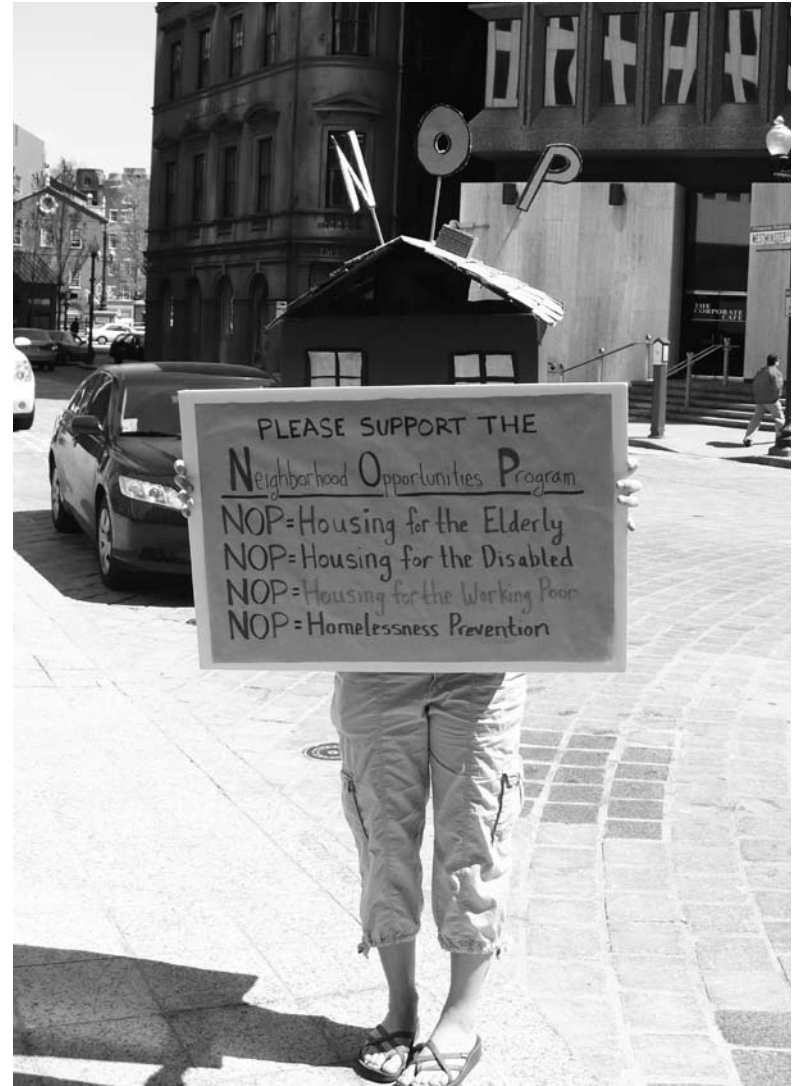 NOP
THE
CORPORATE
CAFE
PLEASE SUPPORT THE
Neighborhood Opportunities Program
NOP=Housing for the Elderly
NOP=Housing for the Disabled
NOP=Housing for the Working Poor
NOP=Homelessness Prevention